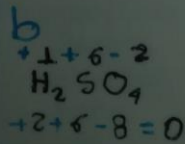 b
+1 +6 -2
H₂ S O₄
+2 +6 -8 = 0